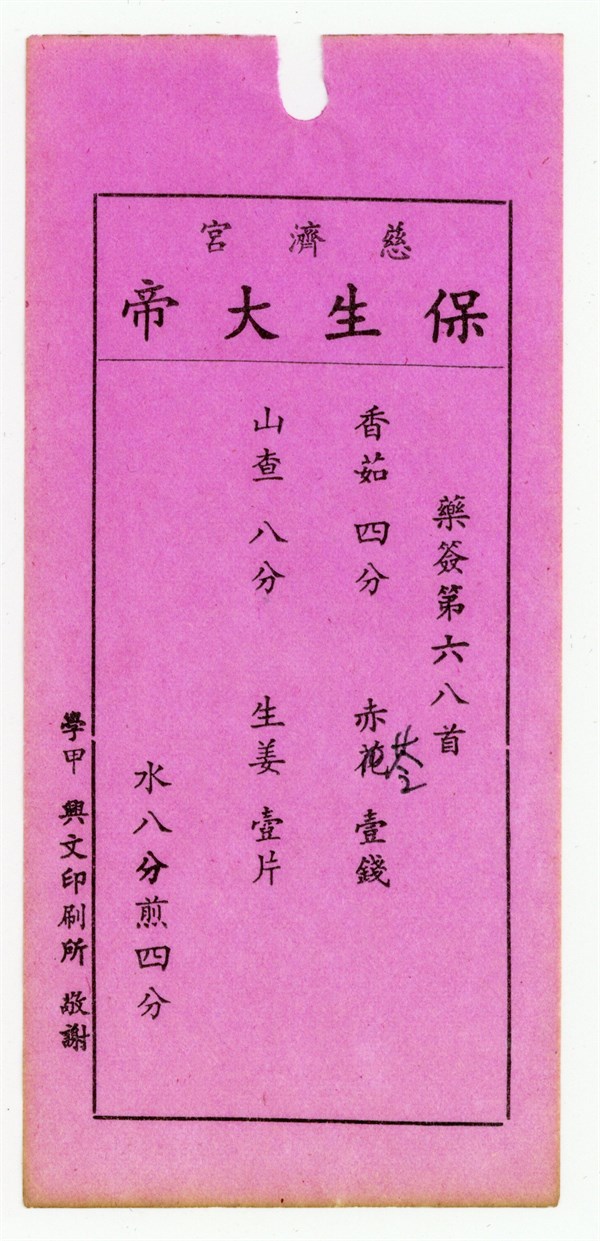 慈濟宮
保生大帝
藥簽第六八首
香茹 四分 赤花 壹錢
苓
山查 八分 生姜 壹片
水八分煎四分
學甲 興文印刷所 敬謝